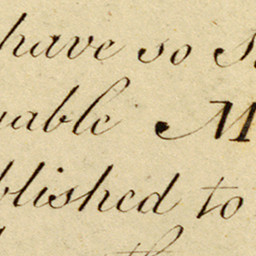 have so
able M
blished to